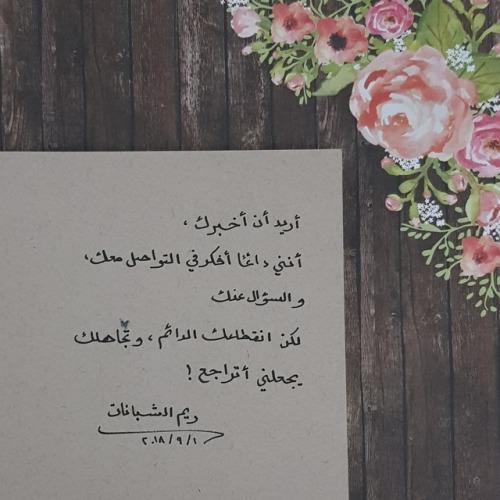 أريد أن أخبرك ،
أنني دائمًا أفكر في التواصل معك،
و السؤال عنك
لكن انقطاعك الدائم ، وتجاهلك
يجعلني أتراجع !
ريم الشبانات
٢٠١٨/٩/١